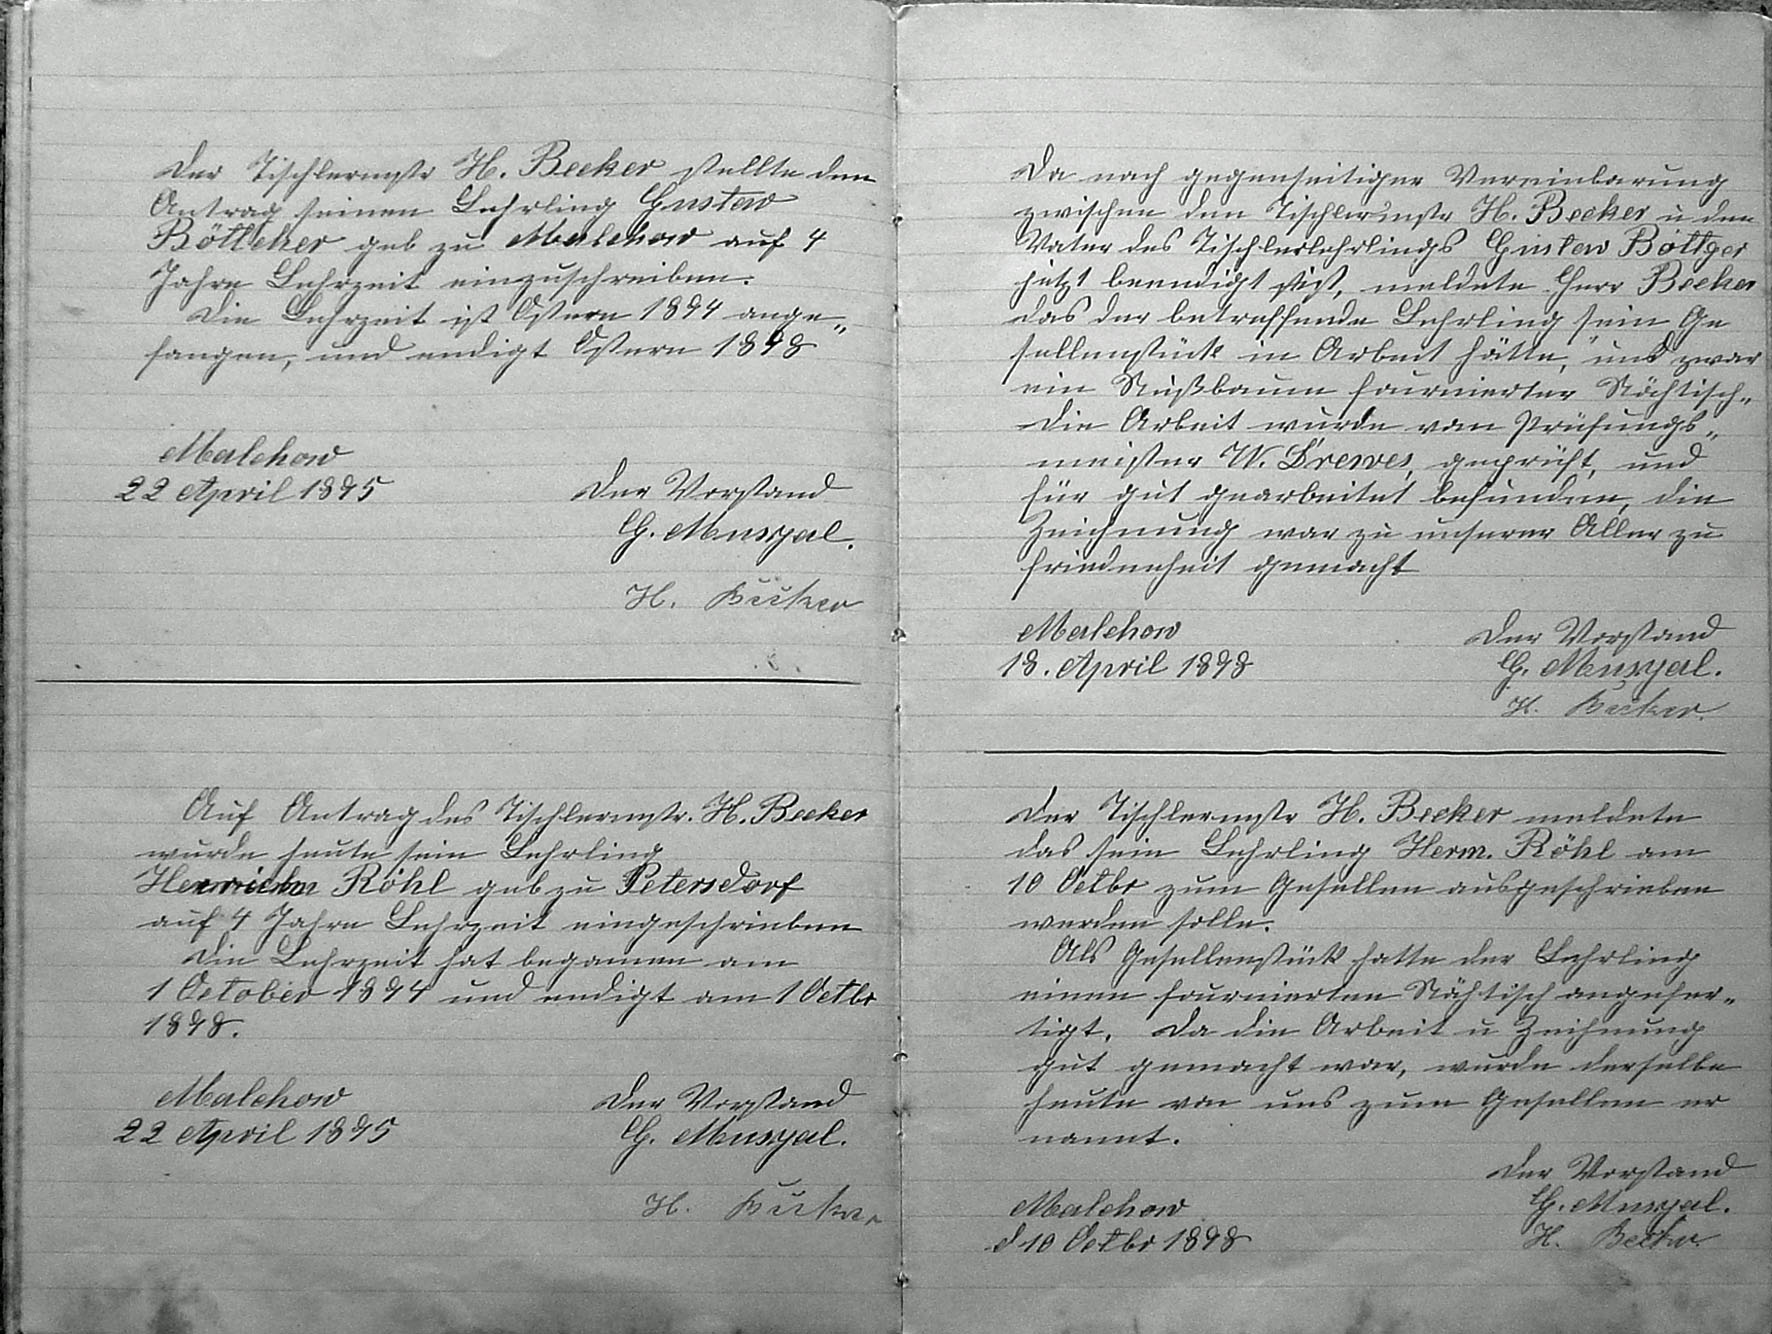 Der Tischlermstr H. Becker stellte den
Antrag seinen Lehrling Gustav
Böttcher geb zu Malchow auf 4
Jahre Lehrzeit einzuschreiben.
Die Lehrzeit ist Ostern 1894 ange„
fangen, und endigt Ostern 1898
Malchow
22 April 1895
Der Vorstand
G.
H. Bücker
Auf Antrag des Tischlermstr. H. Becker
wurde heute sein Lehrling
Röhl geb zu Petersdorf
auf 4 Jahre Lehrzeit eingeschrieben
Die Lehrzeit hat begannen am
1 October 1894 und endigt am 1 Octbr
1898.
Malchow
22 April 1895
Der Vorstand
G.
H.
Da nach gegenseitiger Vereinbarung
zwischen den Tischlermstr H. Becker u den
Vater des Tischlerlehrlings Gustav Böttger
jetzt beendigt ist, meldete Herr Becker
das der betreffende Lehrling sein Ge
sellenstück in Arbeit hätte, und zwar
ein Nußbaum fournierter Nähtisch„
Die Arbeit wurde vom Prüfungs„
meister W. Drewes, geprüft, und
für gut gearbeitet befunden, die
Zeichnung war zu unserer Aller zu
friedenheit gemacht
Malchow
18. April 1898
Der Vorstand
G.
H.
Der Tischlermstr H. Becker meldete
das sein Lehrling Herm. Röhl am
10 Octbr zum Gesellen ausgeschrieben
werden solle.
Als Gesellenstück hatte der Lehrling
einen fournierten Nähtisch angefer„
tigt. Da die Arbeit u Zeichnung
gut gemacht war, wurde derselbe
heute von uns zum Gesellen er
nannt.
Der Vorstand
Malchow
G.
d 10 Octbr 1898
H.